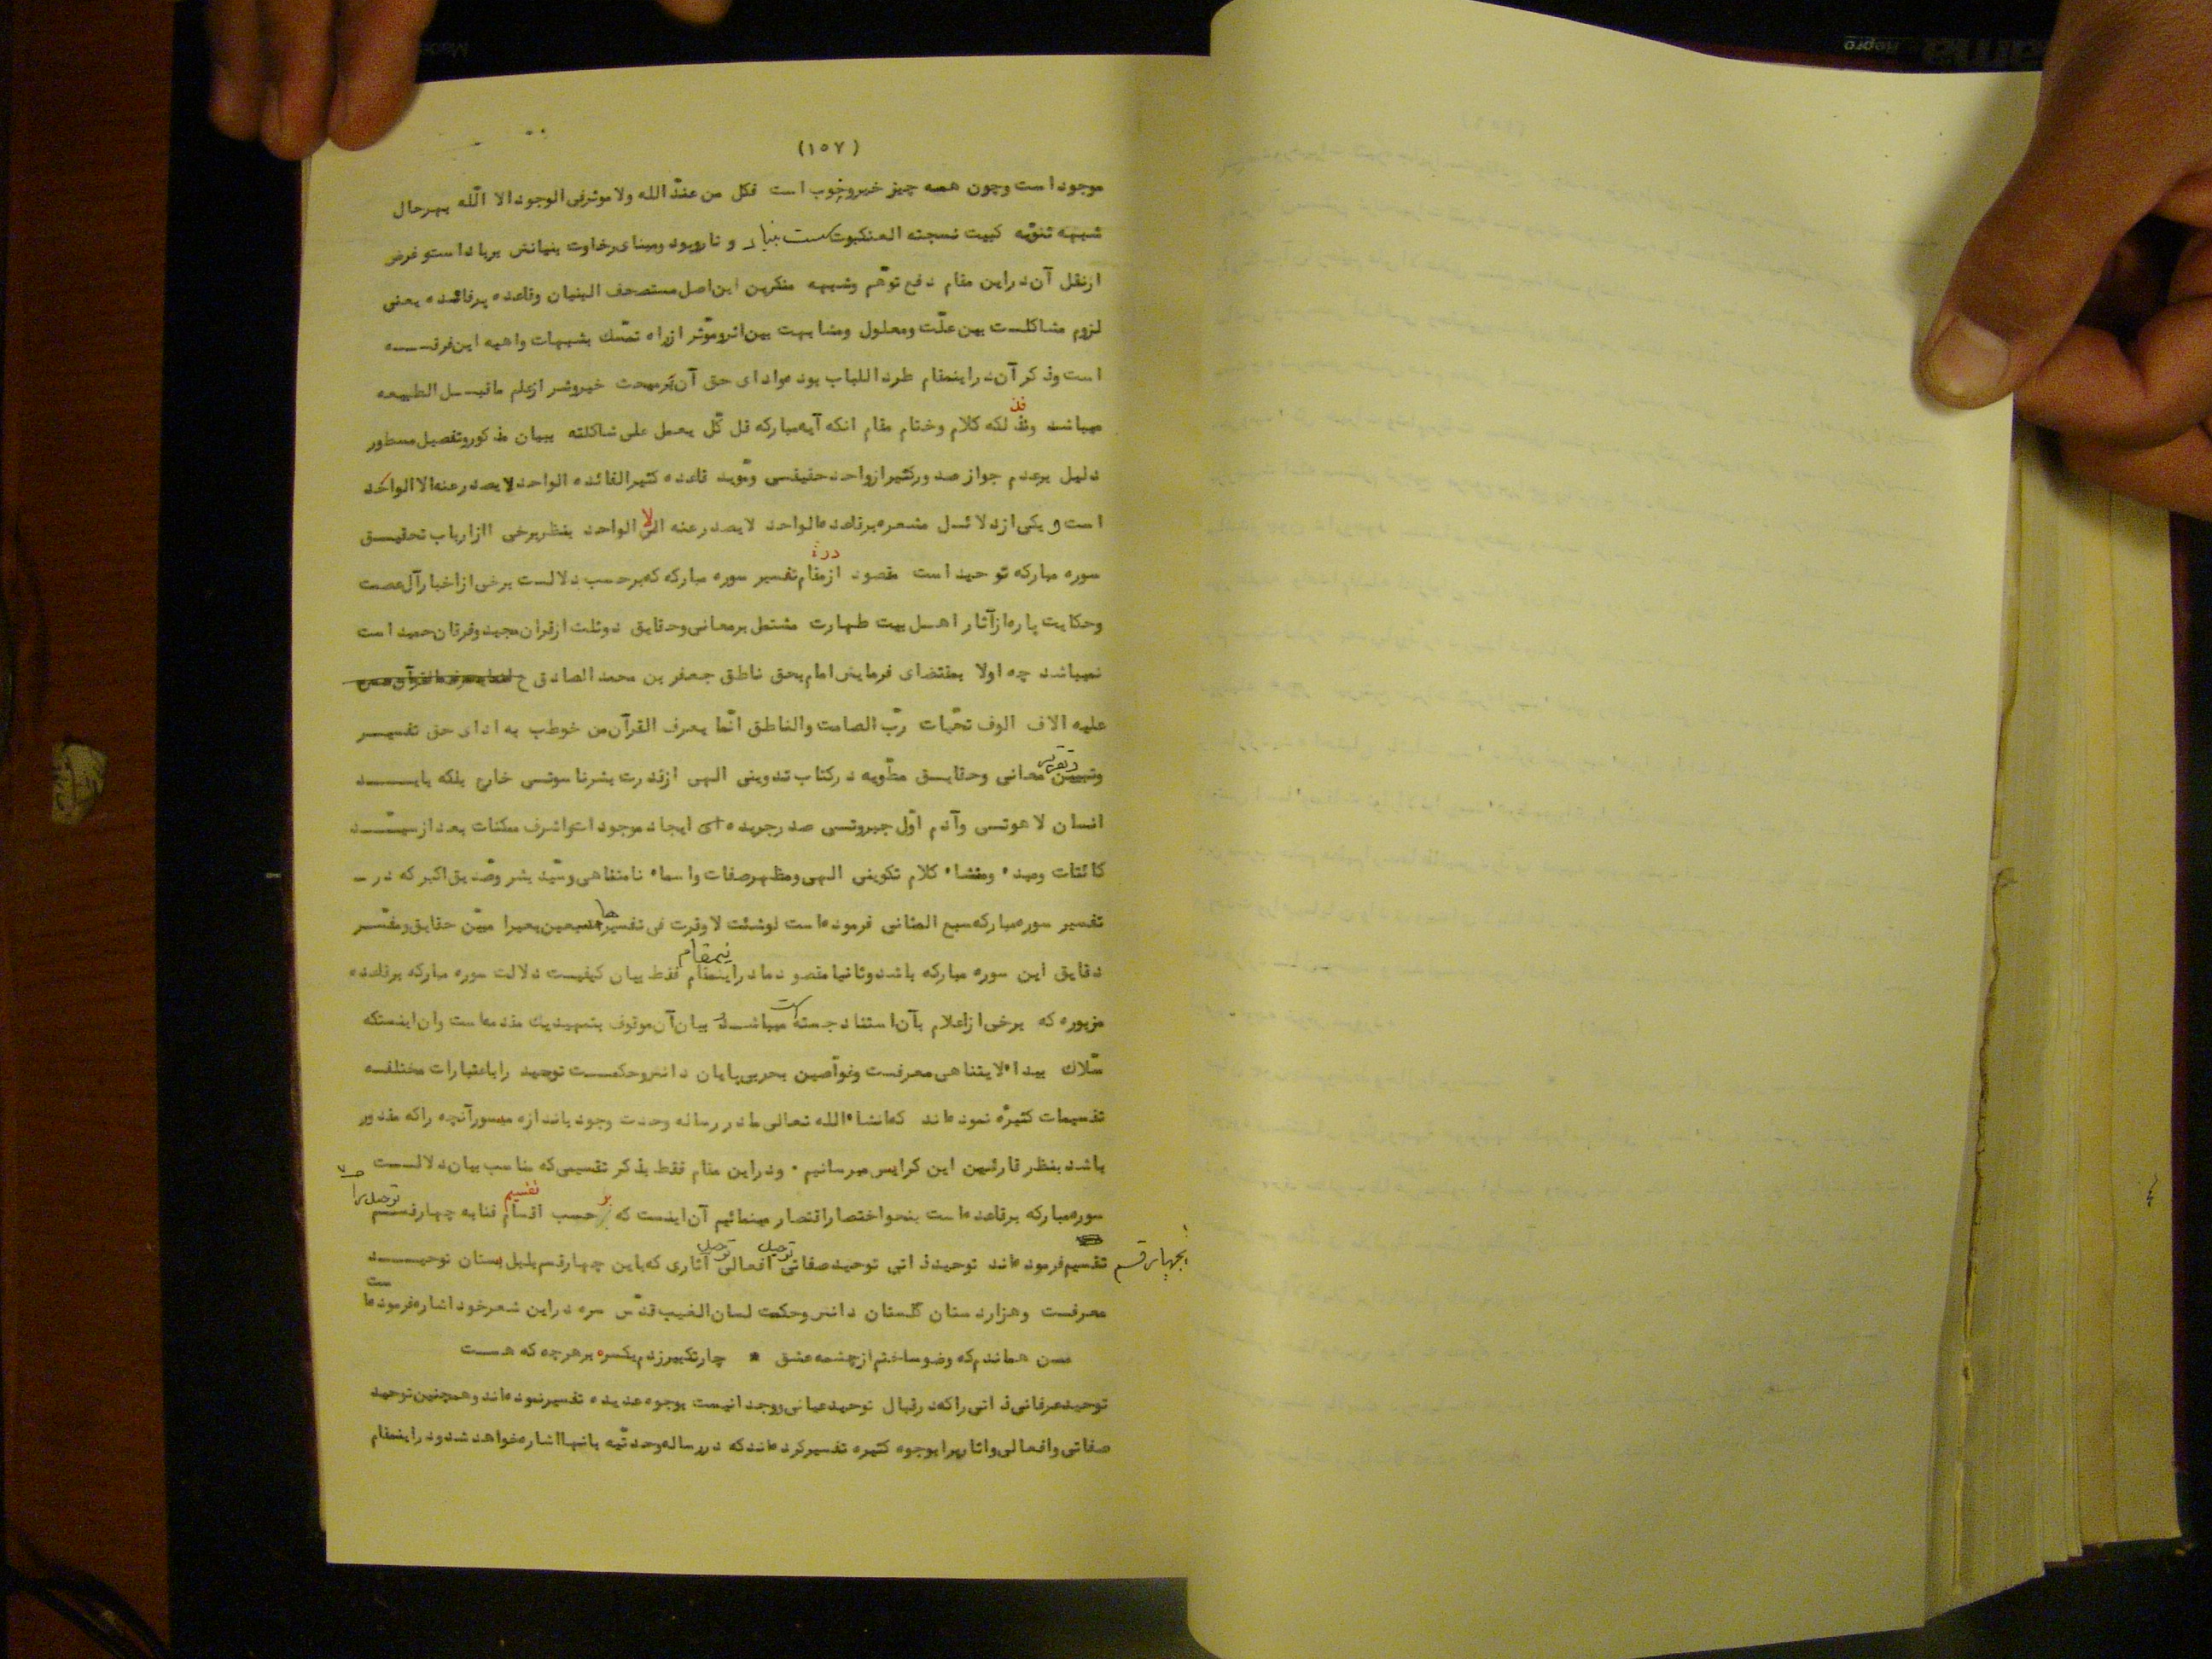 (۱۵۷)
موجود است و چون همه چیز خیر و خوب است فکل من عندّ الله ولا موثر فی الوجود الا اللّه بهر حال
شبهه ثنویّه کبیت نسجته العنکبوت سست بنیاد و تار و پود و مبنای بر خاوت بنیانش بر باد است و غرض
از نقل آن در این مقام دفع توهّم وشبهه منکرین این اصل مستصحف البنیان وقاعده پرفائده یعنی
لزوم مشاکلست بین علّت ومعلول ومشابهت بین اثر وموّثر از راه تمسّک بشبهات واهیه این فرقه
است وذ کر آن در اینمقام طرد اللباب بود و ادای حق آن در مبحث خیر وشر از علم ماقبل الطبیعه
میباشد وفذ لکه کلام وختام مقام انکه آیه مبارکه قل کّل یعمل علی شاکلته ببیان مذ کور وتفصیل مسطور
دلیل بر عدم جواز صدور کثیر از واحد حقیقی وموّید قاعده کثیر الفائده الواحد لا یصدر عنه الا الواحد
است و یکی از دلائل مشعره بر قاعده الواحد لا یصدر عنه الا الواحد بنظر برخی ازارباب تحقیق
در
سوره مبارکه توحید است مقصود از مقام تفسیر سوره مبارکه که بر حسب دلالت برخی از اخبار آل عصمت
وحکایت پاره از آثار اهل بیت طهارت مشتمل بر معانی وحقایق دو ثلث از قران مجید وفرقان حمید است
نمیباشد چه اولا بمقتضای فرمایش امام بحق ناطق جعفر بن محمد الصادق ع
علیه الاف الوف تحیّات ربّ الصامت والناطق انّما یعرف القرآن من خوطب به ادای حق تفسیر
وتقریر معانی وحقایق مطّویه در کتاب تدوینی الهی از قدرت بشر ناسوتی خارج بلکه باید
انسان لاهوتی وآدم اوّل جبروتی صدر جریده ای ایجاد موجود است واشرف ممکنات بعد از سیّد
کائنات ومبدء ومنشاء کلام تکوینی الهی ومظهر صفات واسماء نامتناهی وسیّد بشر وصّدیق اکبر که در -
تفسیر سوره مبارکه سبع المثانی فرموده است لوشئت لاوقرت فی تفسیرها سبعین بعیرا مبیّن حقایق ومفسّر
دقایق این سوره مبارکه باشد وثانیا مقصود ما در اینمقام فقط بیان کیفیت دلالت سوره مبارکه بر قاعده
مزبوره که برخی از اعلام بآن استناد جسته است و بیان آن موقوف بتمهید یک مقدمه است وان اینستکه
سّلاک بیداء لایتناهی معرفت وغوّاصین بحر بی پایان دانش وحکمت توحید را باعتبارات مختلفه
تقسیمات کثیرّه نموده اند که انشاء الله تعالی ما در رساله وحدت وجود باندازه میسور آنچه را که مقدور
باشد بنظر قارئین این کرایس میرسانیم . ودر این مقام فقط بذ کر تقسیمی که مناسب بیان دلالت
سوره مبارکه بر قاعده است بنحو اختصار اقتصار مینمائیم آن اینست که بر حسب تقسیم توحید را
بچهار قسم تقسیم فرموده اند توحید ذ اتی توحید صفاتی توحید افعالی توحید آثاری که باین چهار قسم بلبل بستان توحید
معرفت وهزار دستان گلستان دانش وحکمت لسان الغیب قدّس سره در این شعر خود اشاره فرموده است
من هماندم که وضو ساختم از چشمه عشق * چار تکبیر زدم یکسره بر هر چه که هست
توحید عرفانی ذ اتی را که در قبال توحید عیانی ووجد انیست بوجوه عدیده تفسیر نموده اند وهمچنین توحید
صفاتی وافعالی واثاریرا بوجوه کثیره تفسیر کرده اند که در رساله وحدتّیه بانها اشاره خواهد شد ودر اینمقام